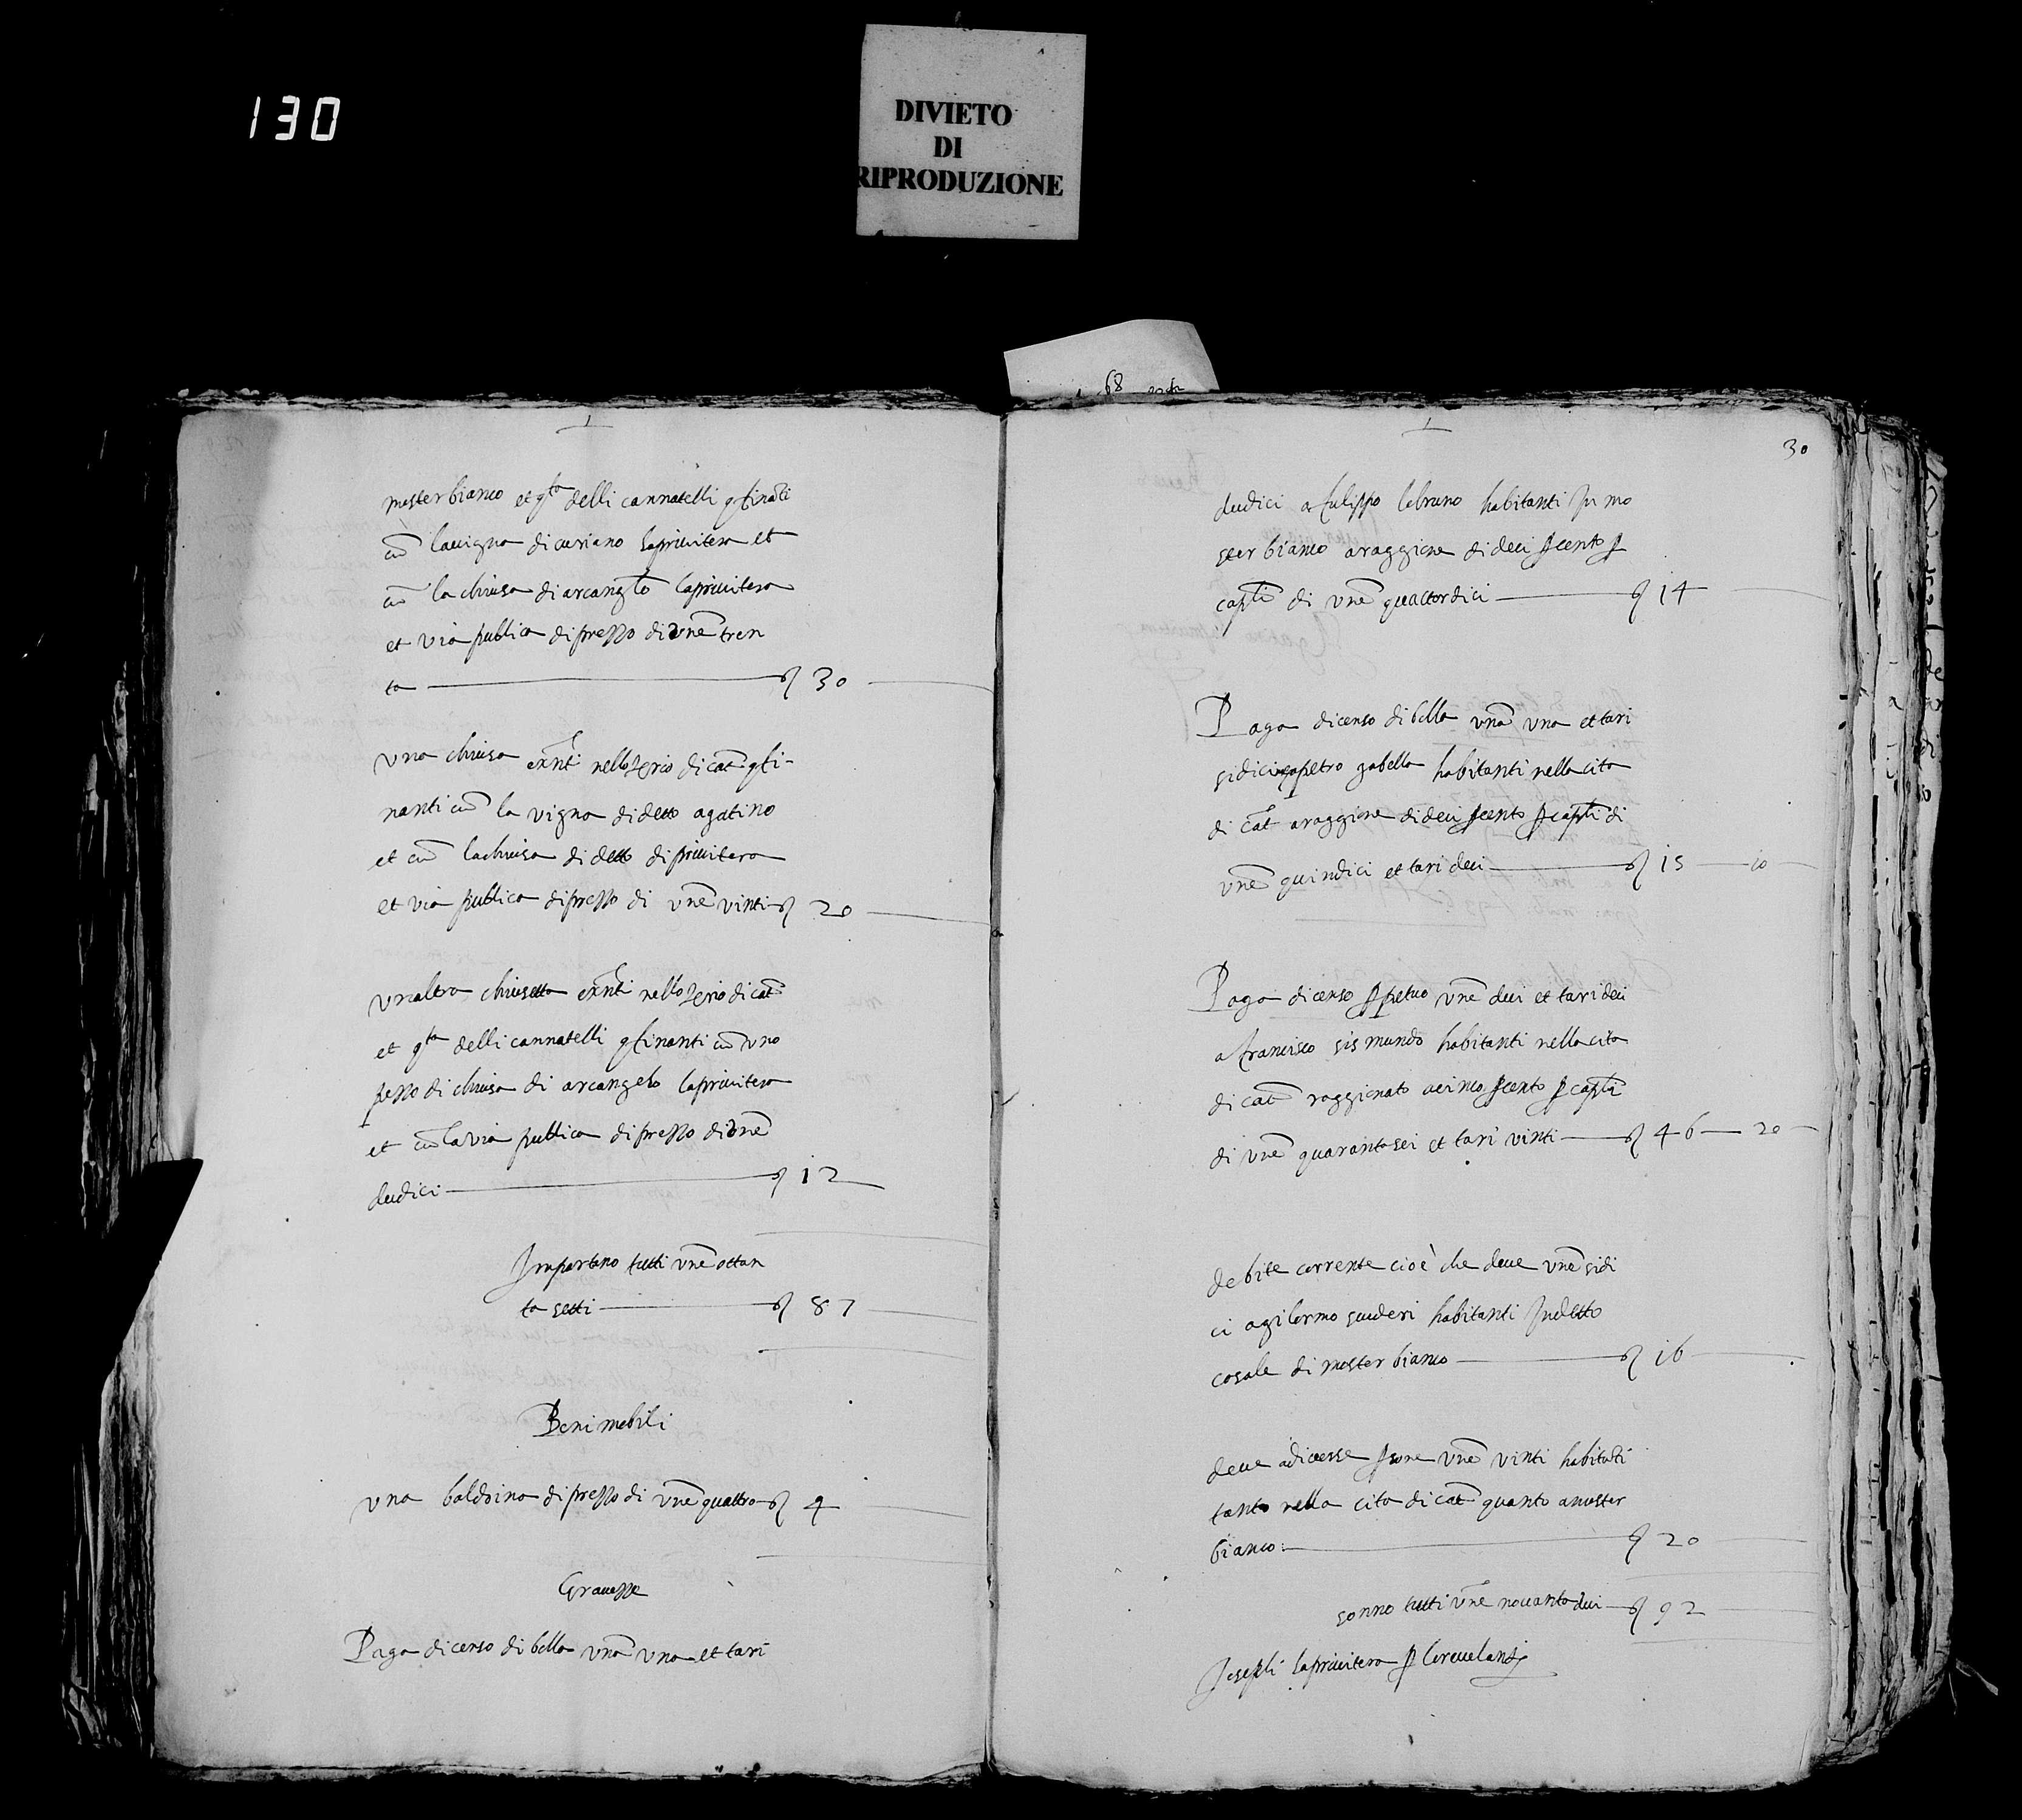 130
DIVIETO
DI
RIPRODUZIONE
68
30
mosterbianco et q.ta delli cannatelli gfinãti
cũ lavigna di curiano lapriuitera et
cũ la chiusa di arcang.lo lapriuitera
et via publica di prezzo di vnẽ tren
ta 30
vna chiusa nello di cat.a gfi-
nanti cũ la vigna di detto agatino
et cũ lachiusa di detto di priuitera
et via publica di prezzo di vnẽ vinti 20
vnaltra chiusetta nello di cat.a
et q.ta delli cannatelli gfinanti cũ vno
pezzo di chiusa di arcangelo lapriuitera
et cũ la via publica di prezzo di vnẽ
dudici 12
Importano tutti vnẽ ottan
ta setti 87
Beni mobili
vna baldoina di prezzo di vnẽ quattro 4
Gravezze
Paga di censo di bolla vnã vna et tarì
dudici a fulippo lobruno habitanti In mo
ster bianco araggione di deci p cento p
cap.li di vnẽ quattordici 14
Paga di censo di bolla vnã vna et tari
sidici a petro gabella habitanti nella cita
di cat.a araggione di deci p cento p cap.li di
vnẽ quindici et tari deci 15 10
Paga di censo ppetuo vnẽ dui et tari deci
a francisco sismundo habitanti nella cita
di cat.a raggionato a cinco p cento p cap.li
di vnẽ quarantasei et tarì vinti 46 20
debite corrente cioè che deve vnẽ sidi
ci a gilormo scuderi habitanti In detto
casale di moster bianco 16
deve a diverse psone vnẽ vinti habitãti
tanto nella cita di cat.a quanto a muster
bianco: 20
sonno tutti vnẽ novanta dui 92
Joseph lapriuitera p